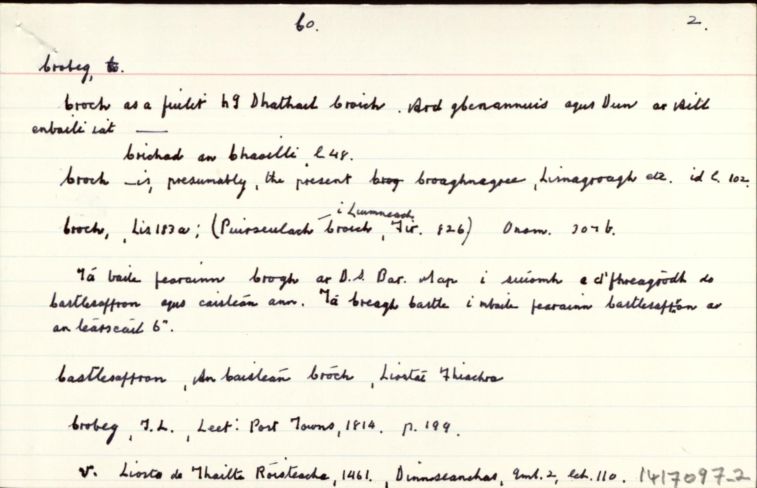 60. 2.
Crobeg, Co.
Croch as a fuilit hg Dhathail Croich. Ard gCenannuis agus Dun ar Aill
enbaili iat —
Crichad an Chaoilli, l. 48.
Croch – is, presumably, the present Croaghnagree, Lisnagroagh etc. id l. 102.
Croch, Lis 183a; (Puirseulach Croich, – i Luimneach, Fir. 826) Onom. 307 b.
Tá baile fearainn Crogh ar D.S. Bar. Map i suíomh a d'fhreagródh do
Castlesaffron agus caisleán ann. Tá Creagh Castle i mbaile fearainn Castlesaffron ar
an léarscáil 6".
Castlesaffron, An Caisleán Cróch, Liostaí Fhiachra
Crobeg, T.L., Leet: Post Towns, 1814. p. 199.
v. Liosta de Thailte Róisteacha, 1461., Dinnseanchas, Iml. 2, lch. 110. 1417097-2